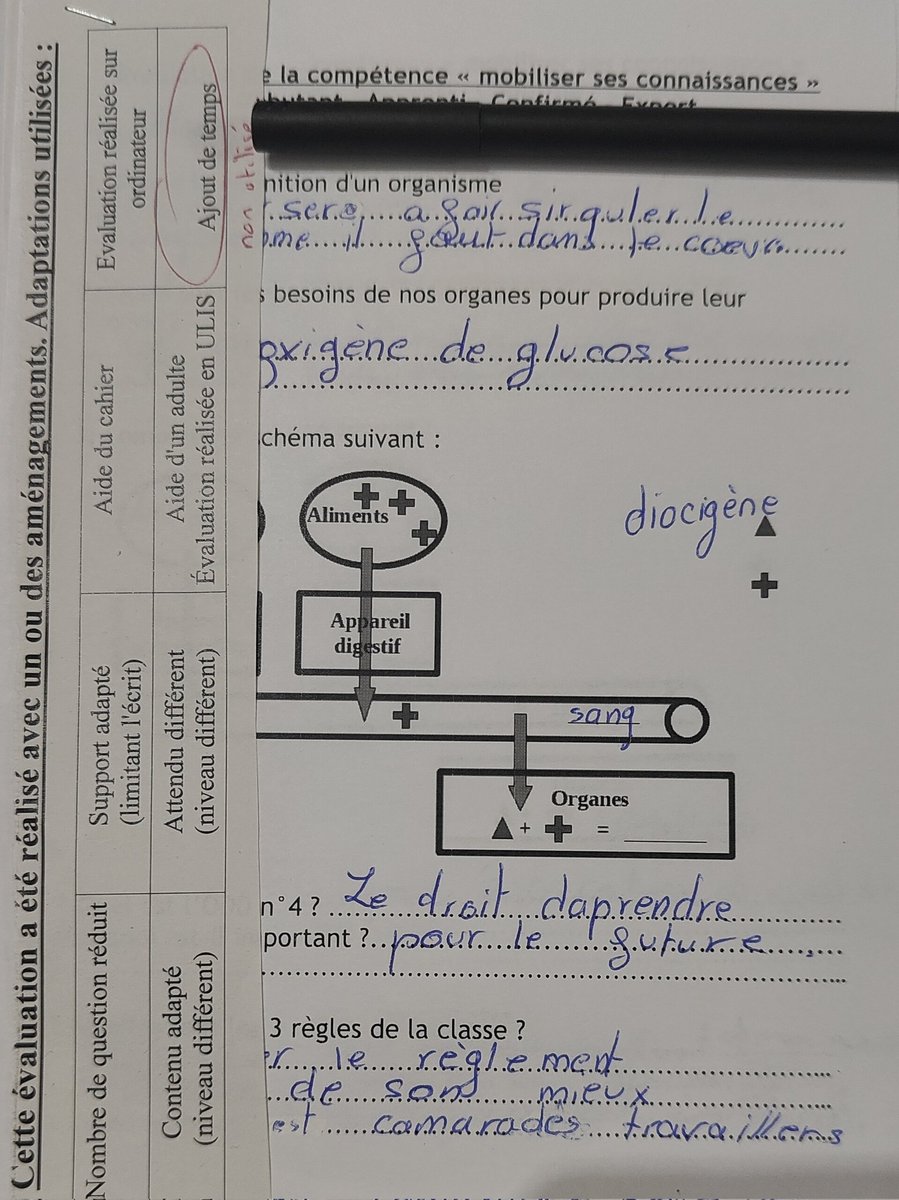 Cette évaluation a été réalisé avec un ou des aménagements. Adaptations utilisées :
Nombre de question réduit
Support adapté
(limitant l'écrit)
Aide du cahier
Evaluation réalisée sur
ordinateur
Contenu adapté
(niveau différent)
Attendu différent
(niveau différent)
Aide d'un adulte
Évaluation réalisée en ULIS
Ajout de temps
non utilisé
e la compétence « mobiliser ses connaissances »
nition d'un organisme
a fair sirquler le
il fout dans le coeur
s besoins de nos organes pour produire leur
oxigène de glucose
chéma suivant :
Aliments
diocigène
Appareil
digestif
sang
Organes
+ =
n°4 ? Le droit daprendre
portant ? pour le future
3 règles de la classe ?
er le règlement
de son mieux
est camarades travaillens